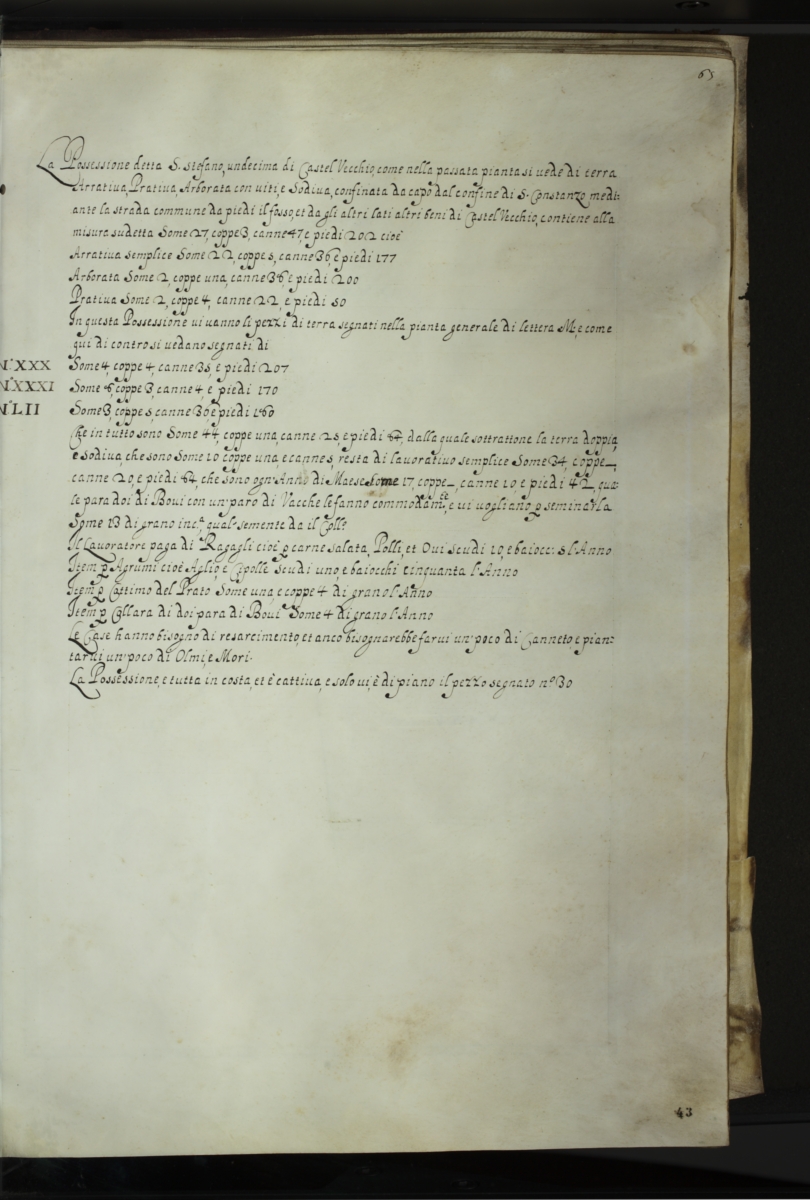 65
La Possessione detta S. Stefano, undecima di Castel Vecchio, come nella passata pianta si uede di terra
Arratiua, Pratiua, Arborata con uiti, e Sodiua, confinata da capo dal confine di S. Constanzo medi:
ante la strada commune da piedi il fosso, et da gli altri lati altri beni di Castel Vecchio, contiene alla
misura sudetta Some 27, coppe 3, canne 47, e piedi 202 cioè
Arratiua semplice Some 22, coppe 5, canne 36, e piedi 177
Arborata Some 2, coppe una, canne 36, e piedi 200
Pratiua Some 2, coppe 4, canne 22, e piedi 50
In questa Possessione ui uanno li pezzi di terra segnati nella pianta generale di lettera M, e come
qui di contro si uedano segnati di
N.º XXX Some 4, coppe 4, canne 35, e piedi 207
N.º XXXI Some 6, coppe 3, canne 4, e piedi 170
N.º LII Some 3, coppe 5, canne 30, e piedi 160
Che in tutto sono Some 44, coppe una, canne 25, e piedi 64, dalla quale sottrattone la terra doppia,
e sodiua, che sono Some 10 coppe una, e canne 5, resta di lauoratiuo semplice Some 34, coppe _,
canne 20, e piedi 64, che sono ogn'Anno di Maese Some 17, coppe _, canne 10, e piedi 42, qua:
le para doi di Boui con un' paro di Vacche le fanno commodam.te, e ui uogliano p seminarla
Some 13 di grano inc.ª, qual semente da il Coll.º
Il Lauoratore paga di Ragagli cioè p carne salata, Polli, et Oui scudi 10, e baiocc: 5 l'Anno
Item p Agrumi cioè Aglio, e Cipolle scudi uno, e baiocchi cinquanta l'Anno
Item p Cottimo del Prato Some una, e coppe 4 di grano l'Anno
Item p Collara di doi para di Boui Some 4 di grano l'Anno
Le Case hanno bisogno di resarcimento, et anco bisognarebbe farui un' poco di Canneto, e pian:
tarui un' poco di Olmi, e Mori.
La Possessione, e tutta in costa, et è cattiua, e solo ui, è di piano il pezzo segnato nº 30
43